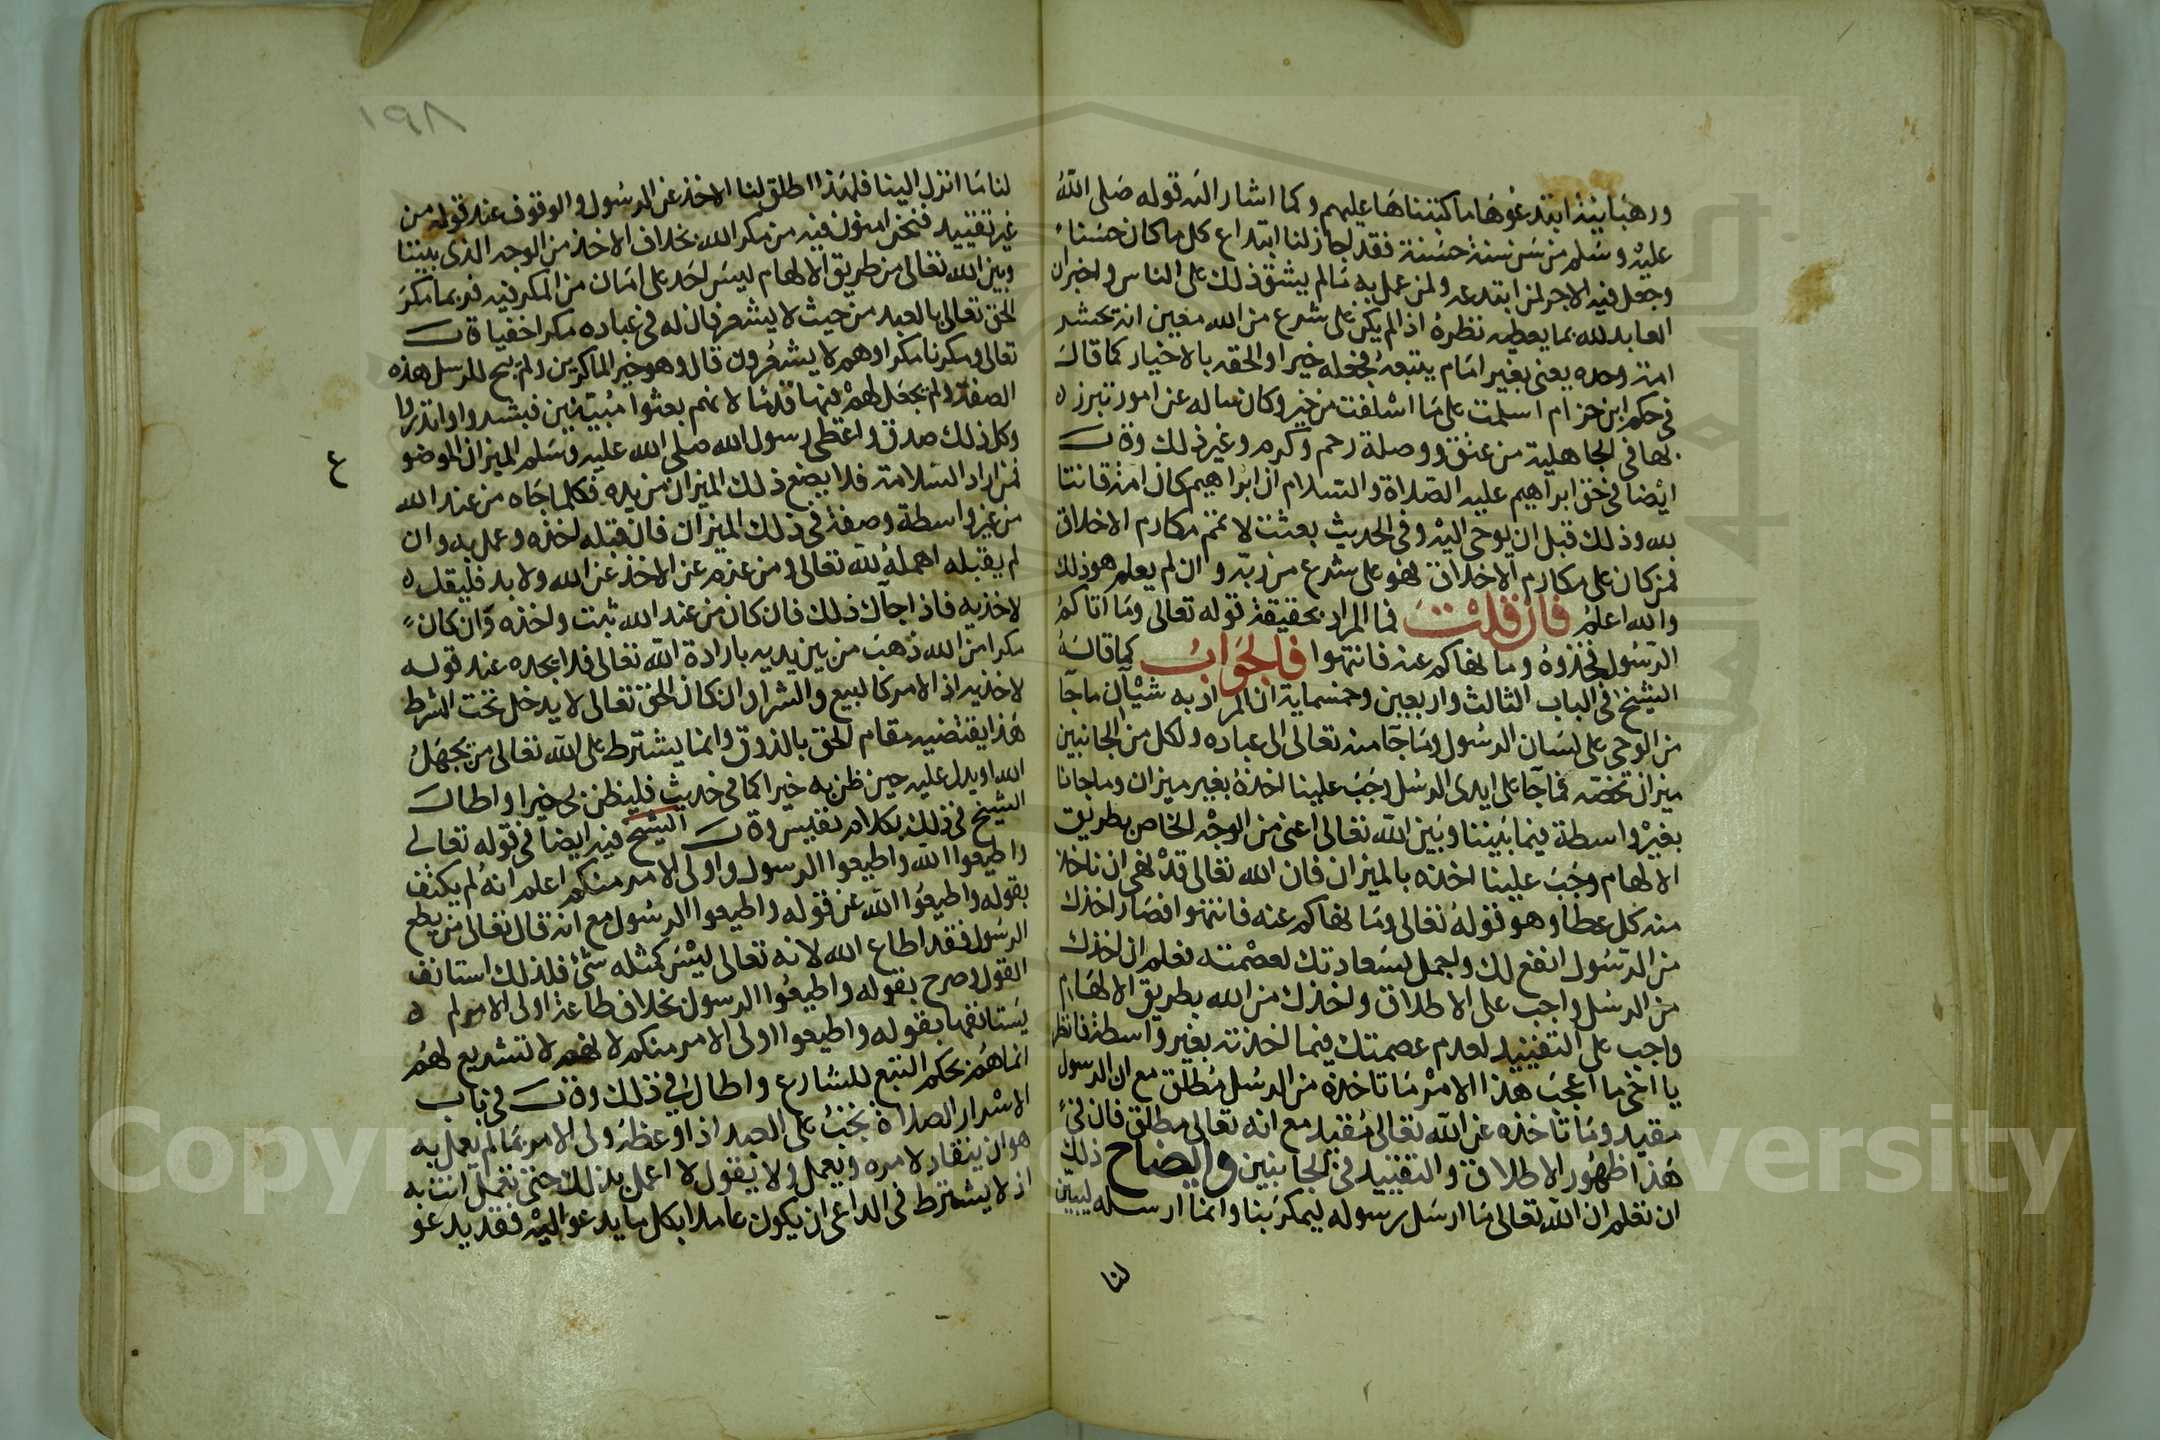 ورهبانية ابتدعوها ما كتبناها عليهم وكما اشار اليه قوله صلى الله
عليه وسلم من سن سنة حسنة فقد اجاز لنا ابتداع كل ما كان حسنا
وجعل فيه الاجر لمن ابتدعه ولمن عمل به ما لم يشق ذلك على الناس واخبر ان
العابد لله بما يعطيه نظره اذا لم يكن على شرع من الله معين انه يحشر
امة وحده يعنى بغير امام يتبعه فجعله خيرا والحقه بالاخيار كما قال
فى حكيم ابن حزام اسلمت على ما اسلفت من خير وكان ساله عن امور تبرز ه
بها فى الجاهلية من عتق ووصلة رحم وكرم وغير ذلك وقال
ايضا فى حق ابراهيم عليه الصلاة والسلام ان ابراهيم كان امة قانتا
لله وذلك قبل ان يوحى اليه وفى الحديث بعثت لاتمم مكارم الاخلاق
فمن كان على مكارم الاخلاق فهو على شرع من ربه وان لم يعلم هو ذلك
والله اعلم فان قلت فما المراد بحقيقة قوله تعالى وما اتاكم
الرسول فخذوه وما نهاكم عنه فانتهوا فالجواب كما قاله
الشيخ فى الباب الثالث واربعين وخمسماية ان المراد به شيآن ما جآ
من الوحى على لسان الرسول وما جآ منه تعالى الى عباده ولكل من الجانبين
ميزان تخصه فما جآ على ايدى الرسل وجب علينا اخذه بغير ميزان وما جانا
بغير واسطة فيما بيننا وبين الله تعالى اعنى من الوجه الخاص بطريق
الالهام وجب علينا اخذه بالميزان فان الله تعالى قد نهى ان ناخذ
منه كل عطا وهو قوله تعالى وما نهاكم عنه فانتهوا فصار اخذك
من الرسول انفع لك واجمل لسعادتك لعصمته فعلم ان اخذك
من الرسل واجب على الاطلاق واخذك من الله بطريق الالهام
واجب على التقييد لعدم عصمتك فيما اخذته بغير واسطة فانظر
يا اخى ما اعجب هذا الامر ما تاخذه من الرسل مطلق مع ان الرسول
مقيد وما تاخذه عن الله تعالى مقيد مع انه تعالى مطلق فان فى
هذا ظهور الاطلاق والتقييد فى الجانبين وايضاح ذلك
ان تعلم ان الله تعالى ما ارسل رسوله ليمكر بنا وانما ارسله ليبين
لنا
٨٥١
لنا ما انزل الينا فلهذا اطلق لنا الاخذ عن الرسول والوقوف عند قوله من
غير تقييد فنحن امنون فيه من مكر الله بخلاف الاخذ من الوجه الذى بيننا
وبين الله تعالى من طريق الالهام ليس احد على امان من المكر فيه فربما مكر
الحق تعالى بالعبد من حيث لا يشعر فان له فى عباده مكرا خفيا قال
تعالى ومكرنا مكرا وهم لا يشعرون قال وهو خير الماكرين ولم يبح للرسل هذه
الصفة ولم يجعل لهم فيها قدما لانهم بعثوا مبينين فبشروا وانذروا
وكل ذلك صدق واعطى رسول الله صلى الله عليه وسلم الميزان الموضو
ع
فمن اراد السلامة فلا يضع ذلك الميزان من يده فكلما جاه من عند الله
من غير واسطة وصفه فى ذلك الميزان فان قبله اخذه وعمل به وان
لم يقبله اهمله لله تعالى ومن عزم عن الاخذ عن الله ولا بد فليقل ه
لاخذيه فاذا جآك ذلك فان كان من عند الله ثبت واخذه وان كان
مكرا من الله ذهب من بين يديه بارادة الله تعالى فلا يجده عند قوله
لاخذيه اذ الامر كالبيع والشرا وان كان الحق تعالى لا يدخل تحت الشرط
هذا يقتضيه مقام الحق بالذوق وانما يشترط على الله تعالى من يجهل
الله او يدل عليه حين ظن به خيرا كما فى حديث فليظن بى خيرا واطال
الشيخ فى ذلك بكلام نفيس وقال الشيخ فيه ايضا فى قوله تعالى
واطيعوا الله واطيعوا الرسول واولى الامر منكم اعلم انه لم يكتف
بقوله واطيعوا الله عن قوله واطيعوا الرسول مع انه قال تعالى من يطع
الرسول فقد اطاع الله لانه تعالى ليس كمثله شئ فلذلك استانف
القول وصرح بقوله واطيعوا الرسول بخلاف طاعة اولى الامر لم ه
يستانفها بقوله واطيعوا اولى الامر منكم لا لانهم لا تشريع لهم
انما هم بحكم التبع للشارع واطال فى ذلك وقال فى باب
الاسرار الصلاة يجب على العبد اذا وعظه ولى الامر بما لم يعمل به
هو ان ينقاد لامره ويعمل ولا يقول لا اعمل بذلك حتى تعمل انت به
اذ لا يشترط فى الداعى ان يكون عاملا بكل ما يدعو اليه فقد يدعو